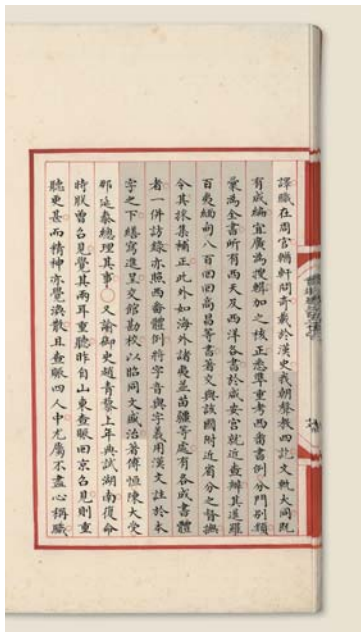 譯職在周官輶軒問奇載於漢史我朝聲教四訖文軌大同既
有成編宜廣為搜輯加之核正悉準重考西番書例分門別類
彙為全書所有西天及西洋各書於咸安宮就近查辦其暹羅
百夷緬甸八百回回高昌等書著交與該國附近省分之督撫
令其採集補正此外如海外諸夷並苗疆等處有各成書體
者一併訪錄亦照西番體例將字音與字義用漢文註於本
字之下繕寫進呈交館勘校以昭同文盛治著傅恒陳大受
那延泰總理其事○又諭御史趙青藜上年典試湖南復命
時朕曾召見覺其兩耳重聽昨自山東查賑回京召見則重
聽更甚而精神亦覺渙散且查賑四人中尤屬不盡心稱職